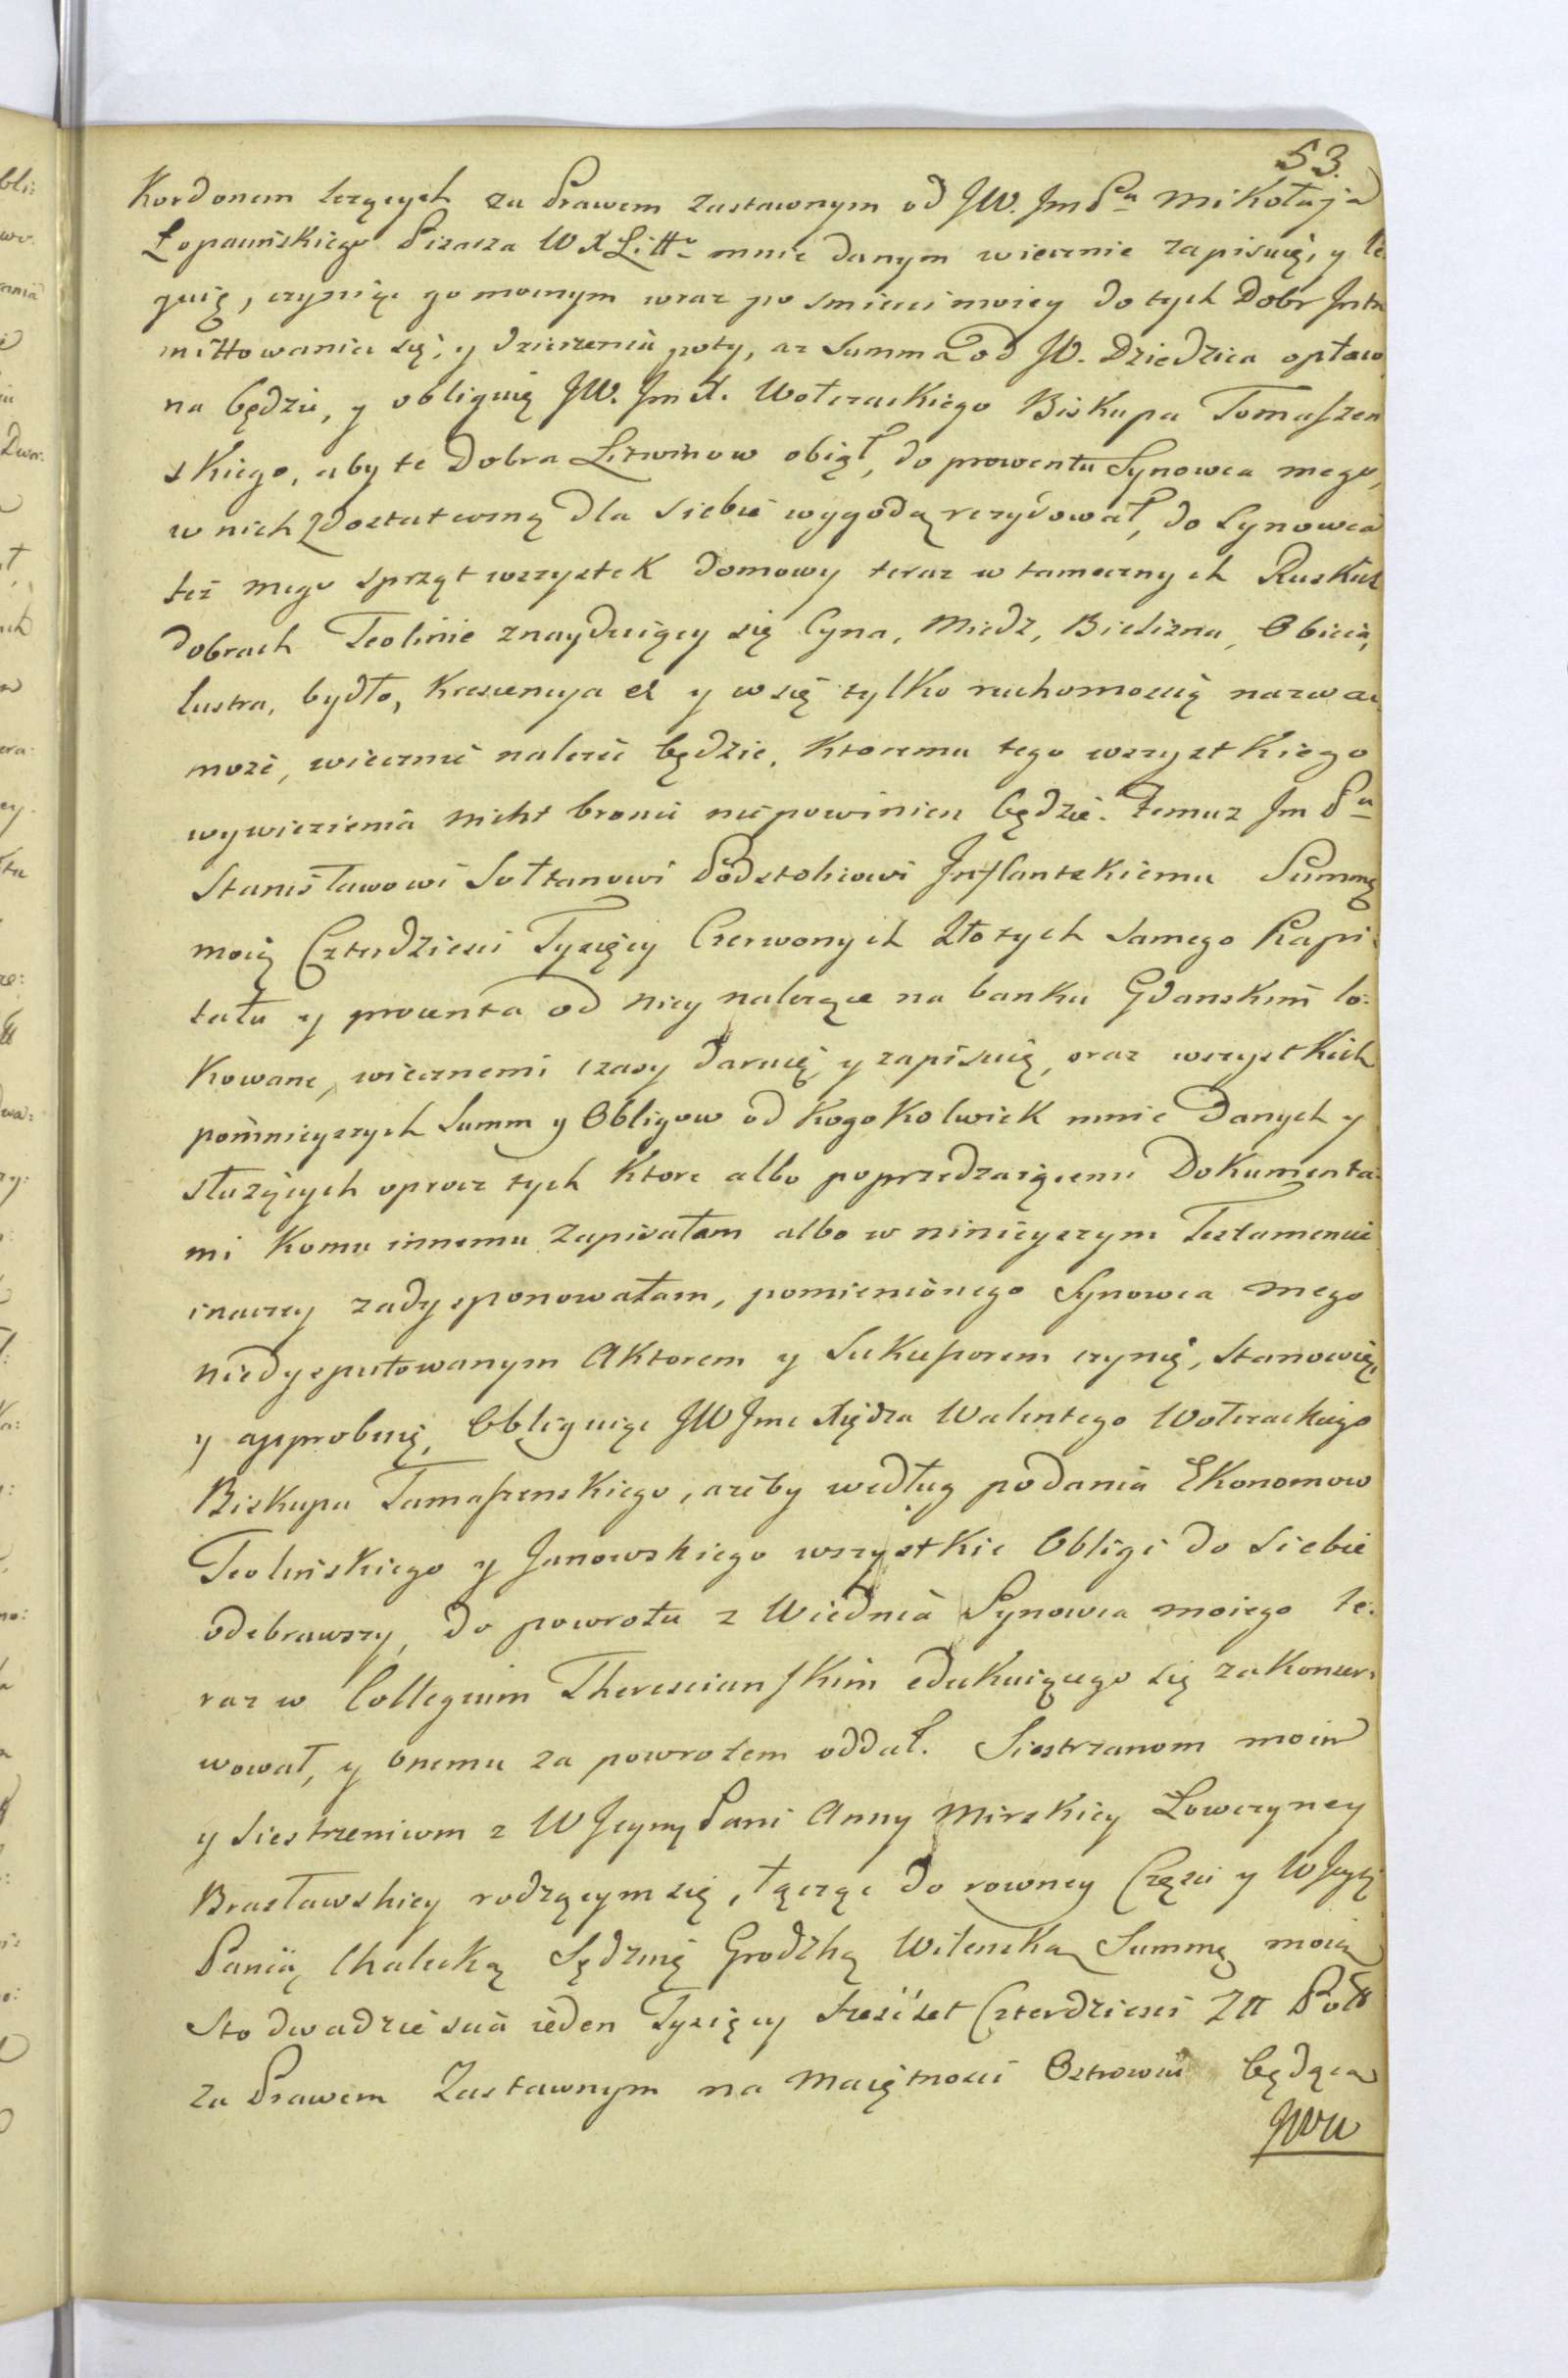 53.
Kordonem lezących za Prawem zastawnym od JW. Jm Pa Mikołaja
Łopacińskiego Pisarza W X Litto mnie danym wiecznie zapisuię, y le:
guię, czynię go mocnym wraz po smierci moiey do tych Dobr Intro
mittowania się, y dzierzenia poty, az Summa od JW. Dziedzica opłaco
na będzie, y obliguię JW. Jm X. Wołczackiego Biskupa Tomaszen
skiego, aby te Dobra Litwinow obiął, do prowentu Synowca mego,
w nich z dostateczną dla siebie wygodą rezydował, do Synowca
też mego sprzęt wszystek domowy teraz w tamecznych Ruskich
dobrach Teolinie znayduiący się Cyna, Miedz, Bielizna, Obicia,
lustra, bydło, krescencya et y w się tylko ruchomoscią nazwać
może, wiecznie należeć będzie, ktoremu tego wszystkiego
wywiezienia nicht bronić niepowinien będzie. Temuz Jm Pu
Stanisławowi Sołtanowi Podstoliowi Inflantskiemu Summę
moią Czterdziesci Tysięcy Czerwonych Złotych samego Kapi:
tału y procenta od niey należące na banku Gdanskim lo:
kowane, wiecznemi czasy daruię y zapisuię, oraz wszystkich
pomnieyszych Summ y Obligow od kogokolwiek mnie Danych y
służących oprocz tych ktore albo poprzedzaiącemi Dokumenta:
mi komu innemu zapisałam albo w ninieyszym Testamencie
inaczey zadysponowałam, pomienionego Synowca mego
niedysputowanym Aktorem y Sukcessorem czynię, stanowię,
y approbuię, Obliguiąc JW Jmc Xiędza Walentego Wołczackiego
Biskupa Tamaszenskiego, ażeby według podania Ekonomow
Teolinskiego y Janowskiego wszystkie Obligi do siebie
odebrawszy, do powrotu z Wiednia Synowca moiego te:
raz w Collegium Theresciańskim edukuiącego się zakonser:
wował, y onemu za powrotem oddał. Siestrzanom moim
y siestrzenicom z W Jeymc Pani Anny Mirskiey Łowczyney
Brasławskiey rodzącym się, łącząc do rowney Części y W Jeyć
Panią Chalecką Sędziną Grodzką Wilenską Summę moią
Sto dwadziescia ieden Tysięcy sześćset Czterdziesci Złł Polł
za Prawem Zastawnym na Maiętnosci Ostrowiu będącą